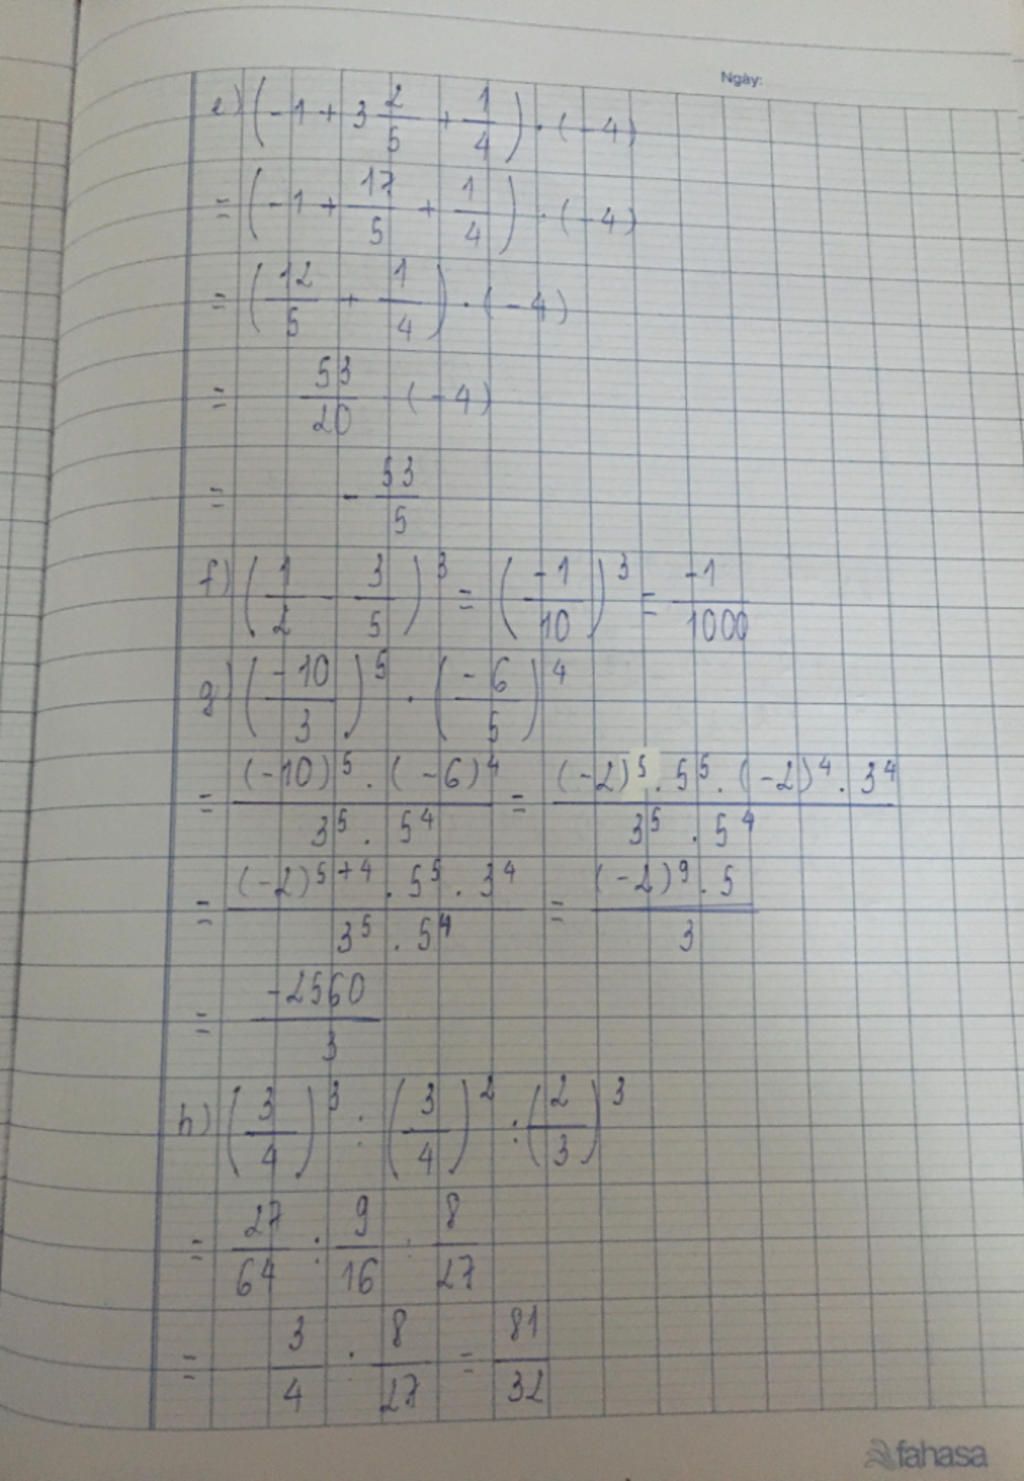 Ngày:
e) (-1 + 3 2/5 + 1/4) . (-4)
= (-1 + 17/5 + 1/4) . (-4)
= (12/5 + 1/4) . (-4)
= 53/20 . (-4)
= -53/5
f) (1/2 - 3/5)^3 = (-1/10)^3 = -1/1000
g) (-10/3)^5 . (-6/5)^4
= (-10)^5 . (-6)^4 / 3^5 . 5^4 = (-2)^5 . 5^5 . (-2)^4 . 3^4 / 3^5 . 5^4
= (-2)^5+4 . 5^5 . 3^4 / 3^5 . 5^4 = (-2)^9 . 5 / 3
= -2560/3
h) (3/4)^3 : (3/4)^2 : (2/3)^3
= 27/64 : 9/16 : 8/27
= 3/4 : 8/27 = 81/32
fahasa